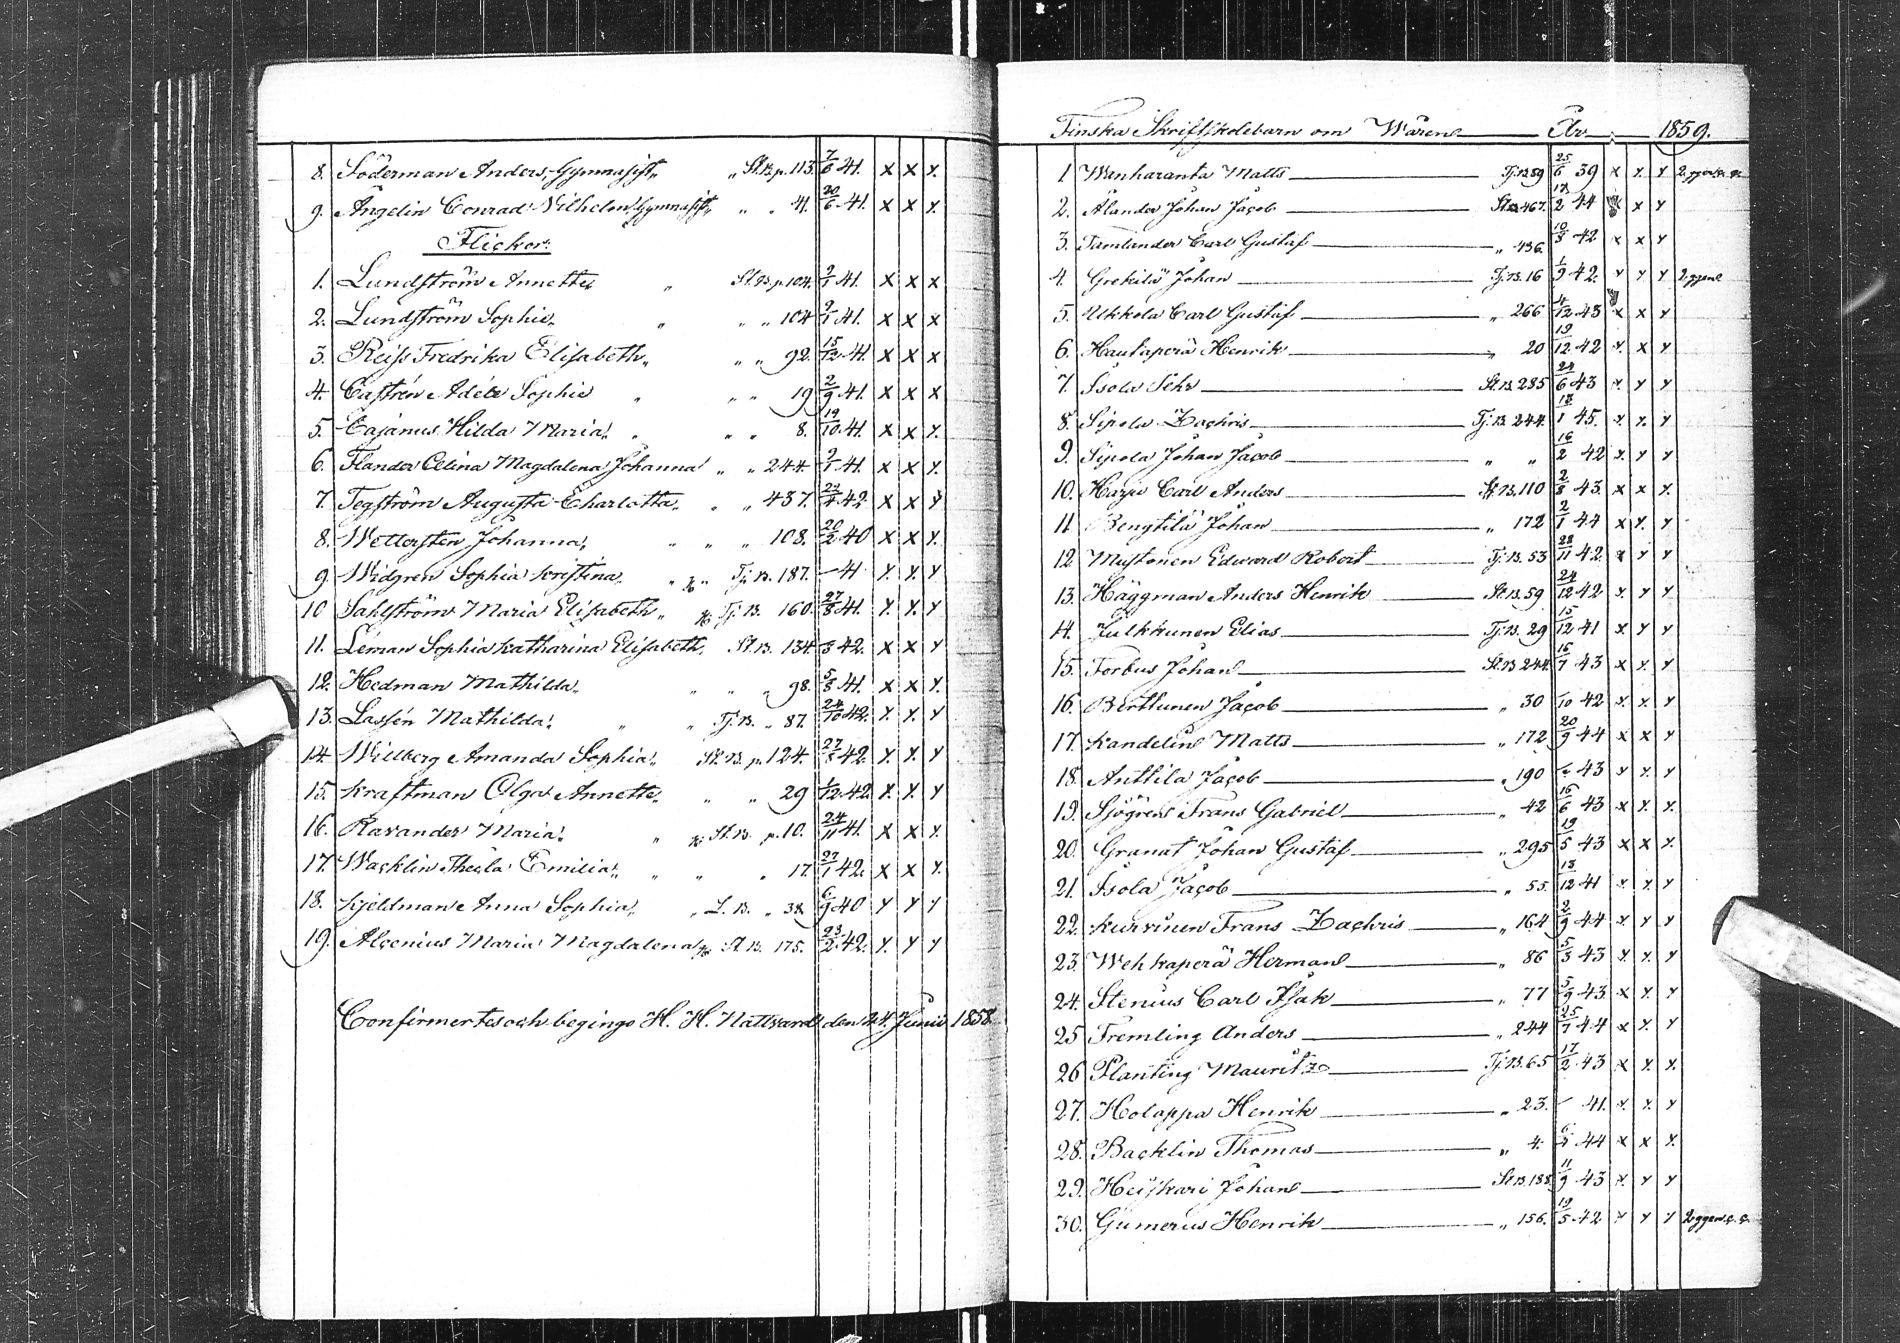 8. Söderman Anders, Gymnasist, „ St.B. p. 113. 7/6 41. x x x
9. Ångelin Conrad Wilhelm, Gymnasist, „ „ 41. 20/6 41. x x x
Flickor:
1. Lundström Annette „ St.B. p. 104. 2/1 41. x x x
2. Lundström Sophie, „ „ „ 104 2/1 41. x x x
3. Reiss Fredrika Elisabeth, „ „ 92. 15/12 41. x x x
4. Castrén Adéle Sophie „ „ „ 19 2/9 41. x x x
5. Cajanus Hilda Maria, „ „ „ 8. 19/10 41. x x x
6. Flander Celina Magdalena Johanna „ „ 244 2/1 41. x x x
7. Tegström Augusta Charlotta, „ „ 437. 42 x x x
8. Wettersten Johanna, „ „ „ 108. 26/2 40 x x x
9. Widgren Sophia Kristina, „ „ Tj.B. 187. – 41 x x x
10 Sahlström Maria Elisabeth „ Tj.B. 160. 27/8 41. x x x
11. Léman Sophia Katharina Elisabeth, St.B. 134. 42. x x x
12. Hedman Mathilda, „ „ „ 98. 5/8 41. x x x
13. Lassén Mathilda, „ „ Tj.B. „ 87. 24/10 42. x x x
14. Willberg Amanda Sophia, St.B. p. 124. 27/8 42. x x x
15. Kraftman Olga Annette, „ „ 29 1/12 42. x x x
16. Ravander Maria, „ St.B. p. 10. 24/11 41. x x x
17. Wacklin Thecla Emilia, „ „ „ 17. 27/1 42. x x x
18. Kjeldman Anna Sophia, „ L.B. „ 38. 6/9 40 x x x
19. Alcenius Maria Magdalena, St.B. 175. 23/2 42. x x x
Confirmertes och begingo H. H. Nattvard den 24. Junii 1858.
Finska Skriftskolebarn om Våren År 1859.
1. Wenharanta Matts Tj.B. 59 25/6 39 x x x
2. Ålander Johan Jacob St.B. 467. 17/2 44 x x
3. Tamlander Carl Gustaf „ 436. 10/3 42 x x x
4. Grekilä Johan Tj.B. 16 1/9 42. x x x 2 ggen
5. Ukkola Carl Gustaf „ 266 4/12 43 x x x
6. Hautaperä Henrik „ 20 19/12 42 x x x
7. Isola Sehr St.B. 285 24/6 43 x x x
8. Sipola Zachris Tj.B. 244. 18/1 45. x x x
9. Sipola Johan Jacob „ „ 16/2 42 x x x
10. Harju Carl Anders St.B. 110 2/8 43. x x x
11 Bengtilä Johan „ 172 2/1 44 x x x
12 Mustonen Edward Robert Tj.B. 53 28/11 42. x x x
13. Häggman Anders Henrik St.B. 59 24/12 42 x x x
14. Julkkunen Elias Tj.B. 29 15/12 41 x x x
15. Forbus Johan St.B. 244. 16/7 43 x x x
16. Berttunen Jacob „ 30 /10 42 x x x
17. Kandelin Matts „ 172 20/9 44 x x x
18. Anttila Jacob „ 190 43 x x x
19. Sjögren Frans Gabriel „ 42 16/6 43 x x x
20. Granat Johan Gustaf „ 295 19/5 43 x x x
21. Isola Jacob „ 55. 18/12 41 x x x
22. Kurvinen Frans Zachris „ 164 2/9 44 x x x
23. Wehkaperä Herman „ 86 5/3 43 x x x
24. Stenius Carl Isak „ 77 5/9 43. x x x
25 Fremling Anders „ 244 25/7 44 x x x
26 Planting Mauritz Tj.B. 65 17/2 43 x x x
27. Holappa Henrik „ 23. – 41. x x x
28. Backlin Thomas „ 4. 44 x x x
29. Heiskari Johan St.B. 188. 11/9 43 x x x
30. Gumerus Henrik „ 156. 19/5 42 x x x 2 ggen